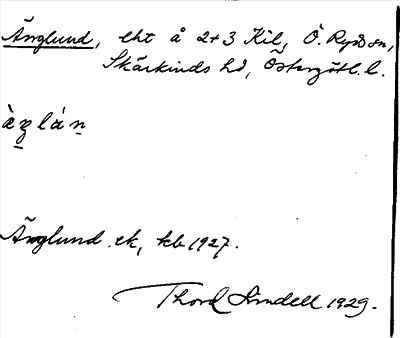 Änglund, lht å 2+3 Kil, Ö. Ryds sn,
Skärkinds hd, Östergötl. l.
àŋlán
Änglund ek, kb 1927.
Thord Lindell 1929.